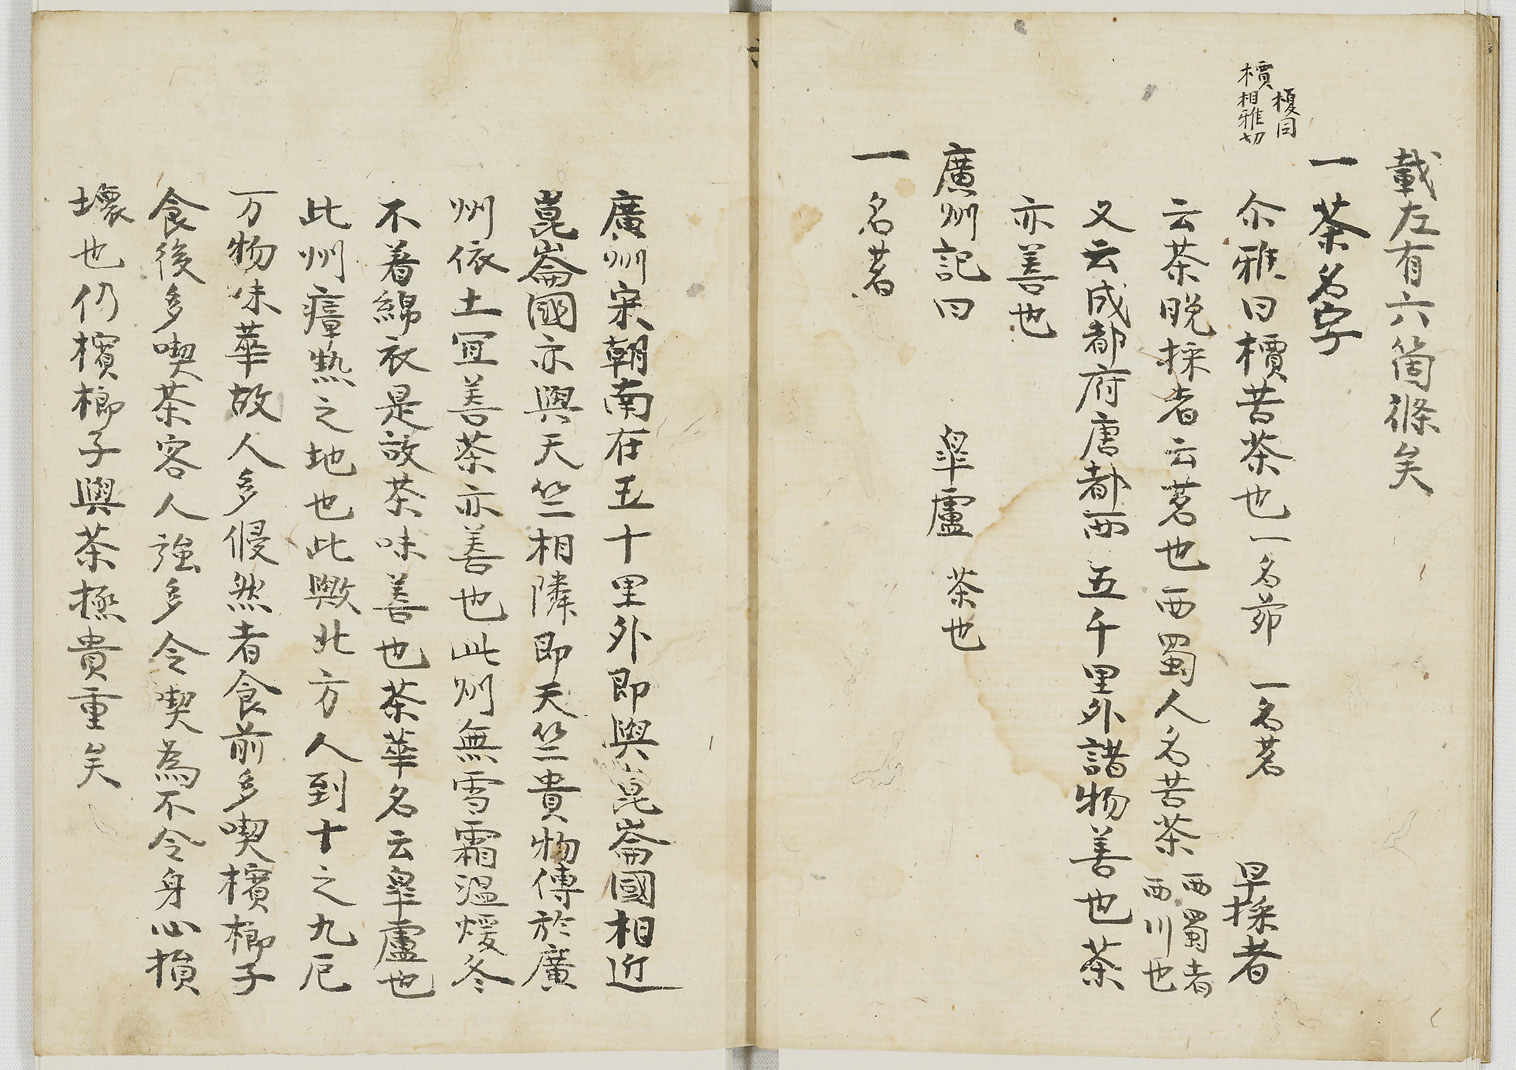 載左有六箇條矣
榎同
檟相雅切
一茶名字
尒雅曰檟苦茶也一名茆 一名茗 早採者
云茶晩採者云茗也西蜀人名苦茶西蜀者
西川也
又云成都府唐都西五千里外諸物善也茶
亦善也
廣州記曰 皐盧 茶也
一名茗
廣州宋朝南在五十里外即與崑崙國相近
崑崙國亦與天竺相隣即天竺貴物傳於廣
州依土宜善茶亦善也此州無雪霜温煖冬
不着綿衣是故茶味善也茶華名云皐盧也
此州瘴熱之地也此歟北方人到十之九厄
万物味華故人多慢然者食前多喫檳榔子
食後多喫茶客人強多令喫為不令身心損
壞也仍檳榔子與茶極貴重矣